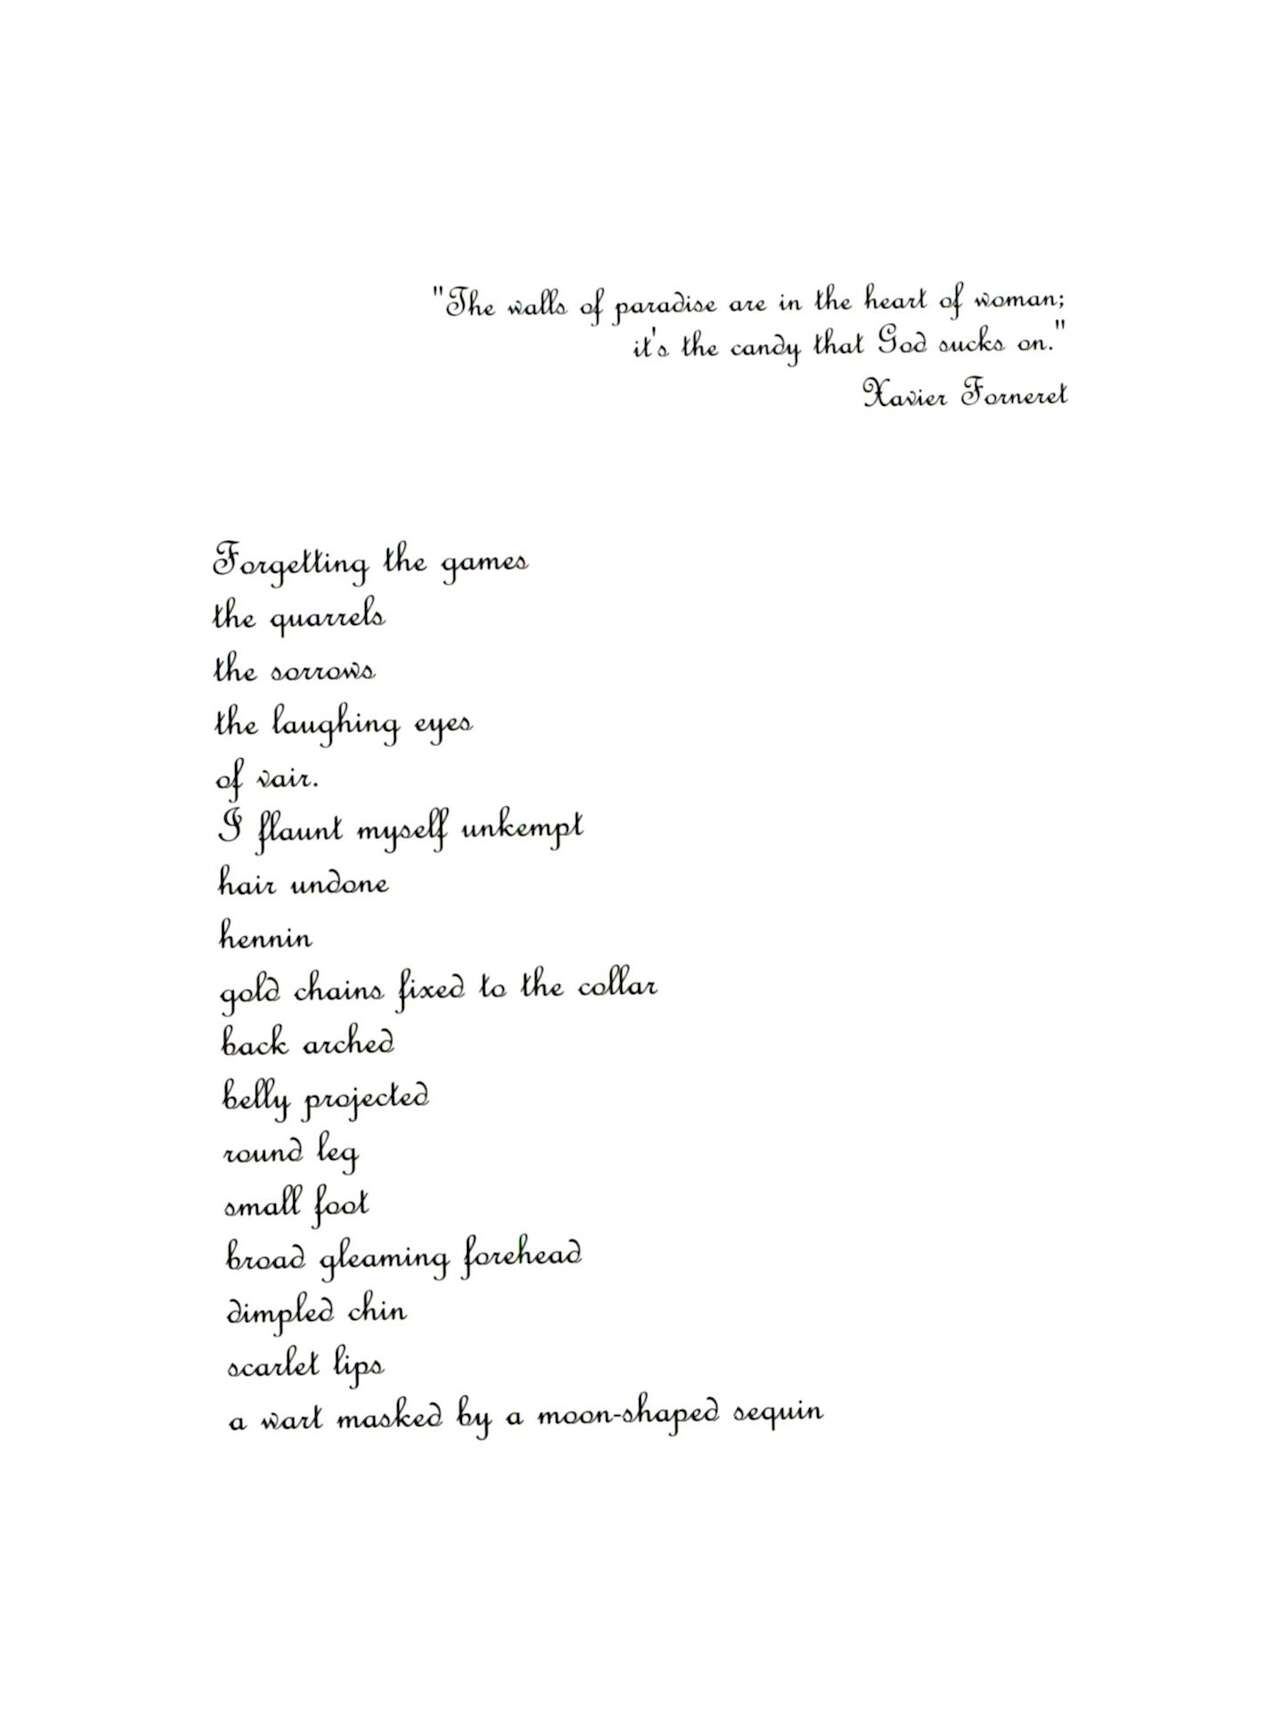 "The walls of paradise are in the heart of woman;
it's the candy that God sucks on."
Xavier Forneret
Forgetting the games
the quarrels
the sorrows
the laughing eyes
of vair.
I flaunt myself unkempt
hair undone
hennin
gold chains fixed to the collar
back arched
belly projected
round leg
small foot
broad gleaming forehead
dimpled chin
scarlet lips
a wart masked by a moon-shaped sequin